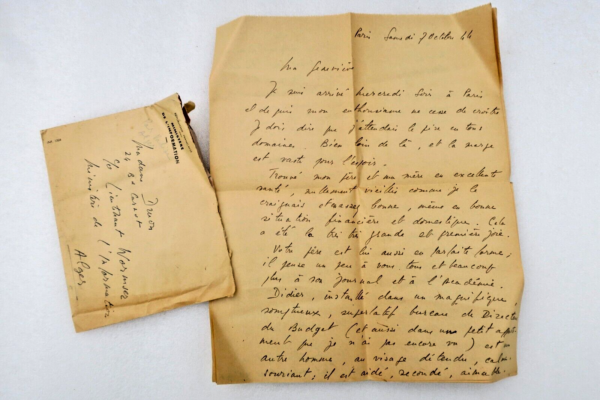 MINISTÈRE
DE L'INFORMATION
Madame Druon
24 Bd Carnot
Chez Lieutenant Wormser
Ministère de l'Information
Alger
Paris Samedi 7 Octobre 44
Ma Geneviève
Je suis arrivé mercredi soir à Paris
et depuis mon enthousiasme ne cesse de croître
Je dois dire que j'attendais le pire en tous
domaines. Bien loin de là, et la marge
est vaste pour l'espoir.
Trouvé mon père et ma mère en excellente
santé, nullement vieillis comme je le
craignais et assez bonne, même en bonne
situation financière et domestique. Cela
a été la très très grande et première joie.
Votre père est lui aussi en parfaite forme,
il pense un peu à vous tous et beaucoup
plus à son journal et à l'Académie.
Didier, installé dans un magnifique,
somptueux, superlatif bureau de Directeur
du Budget (et aussi dans un petit appart
ment que je n'ai pas encore vu) est un
autre homme, au visage détendu, calme
souriant; il est aidé, secondé, aimable.